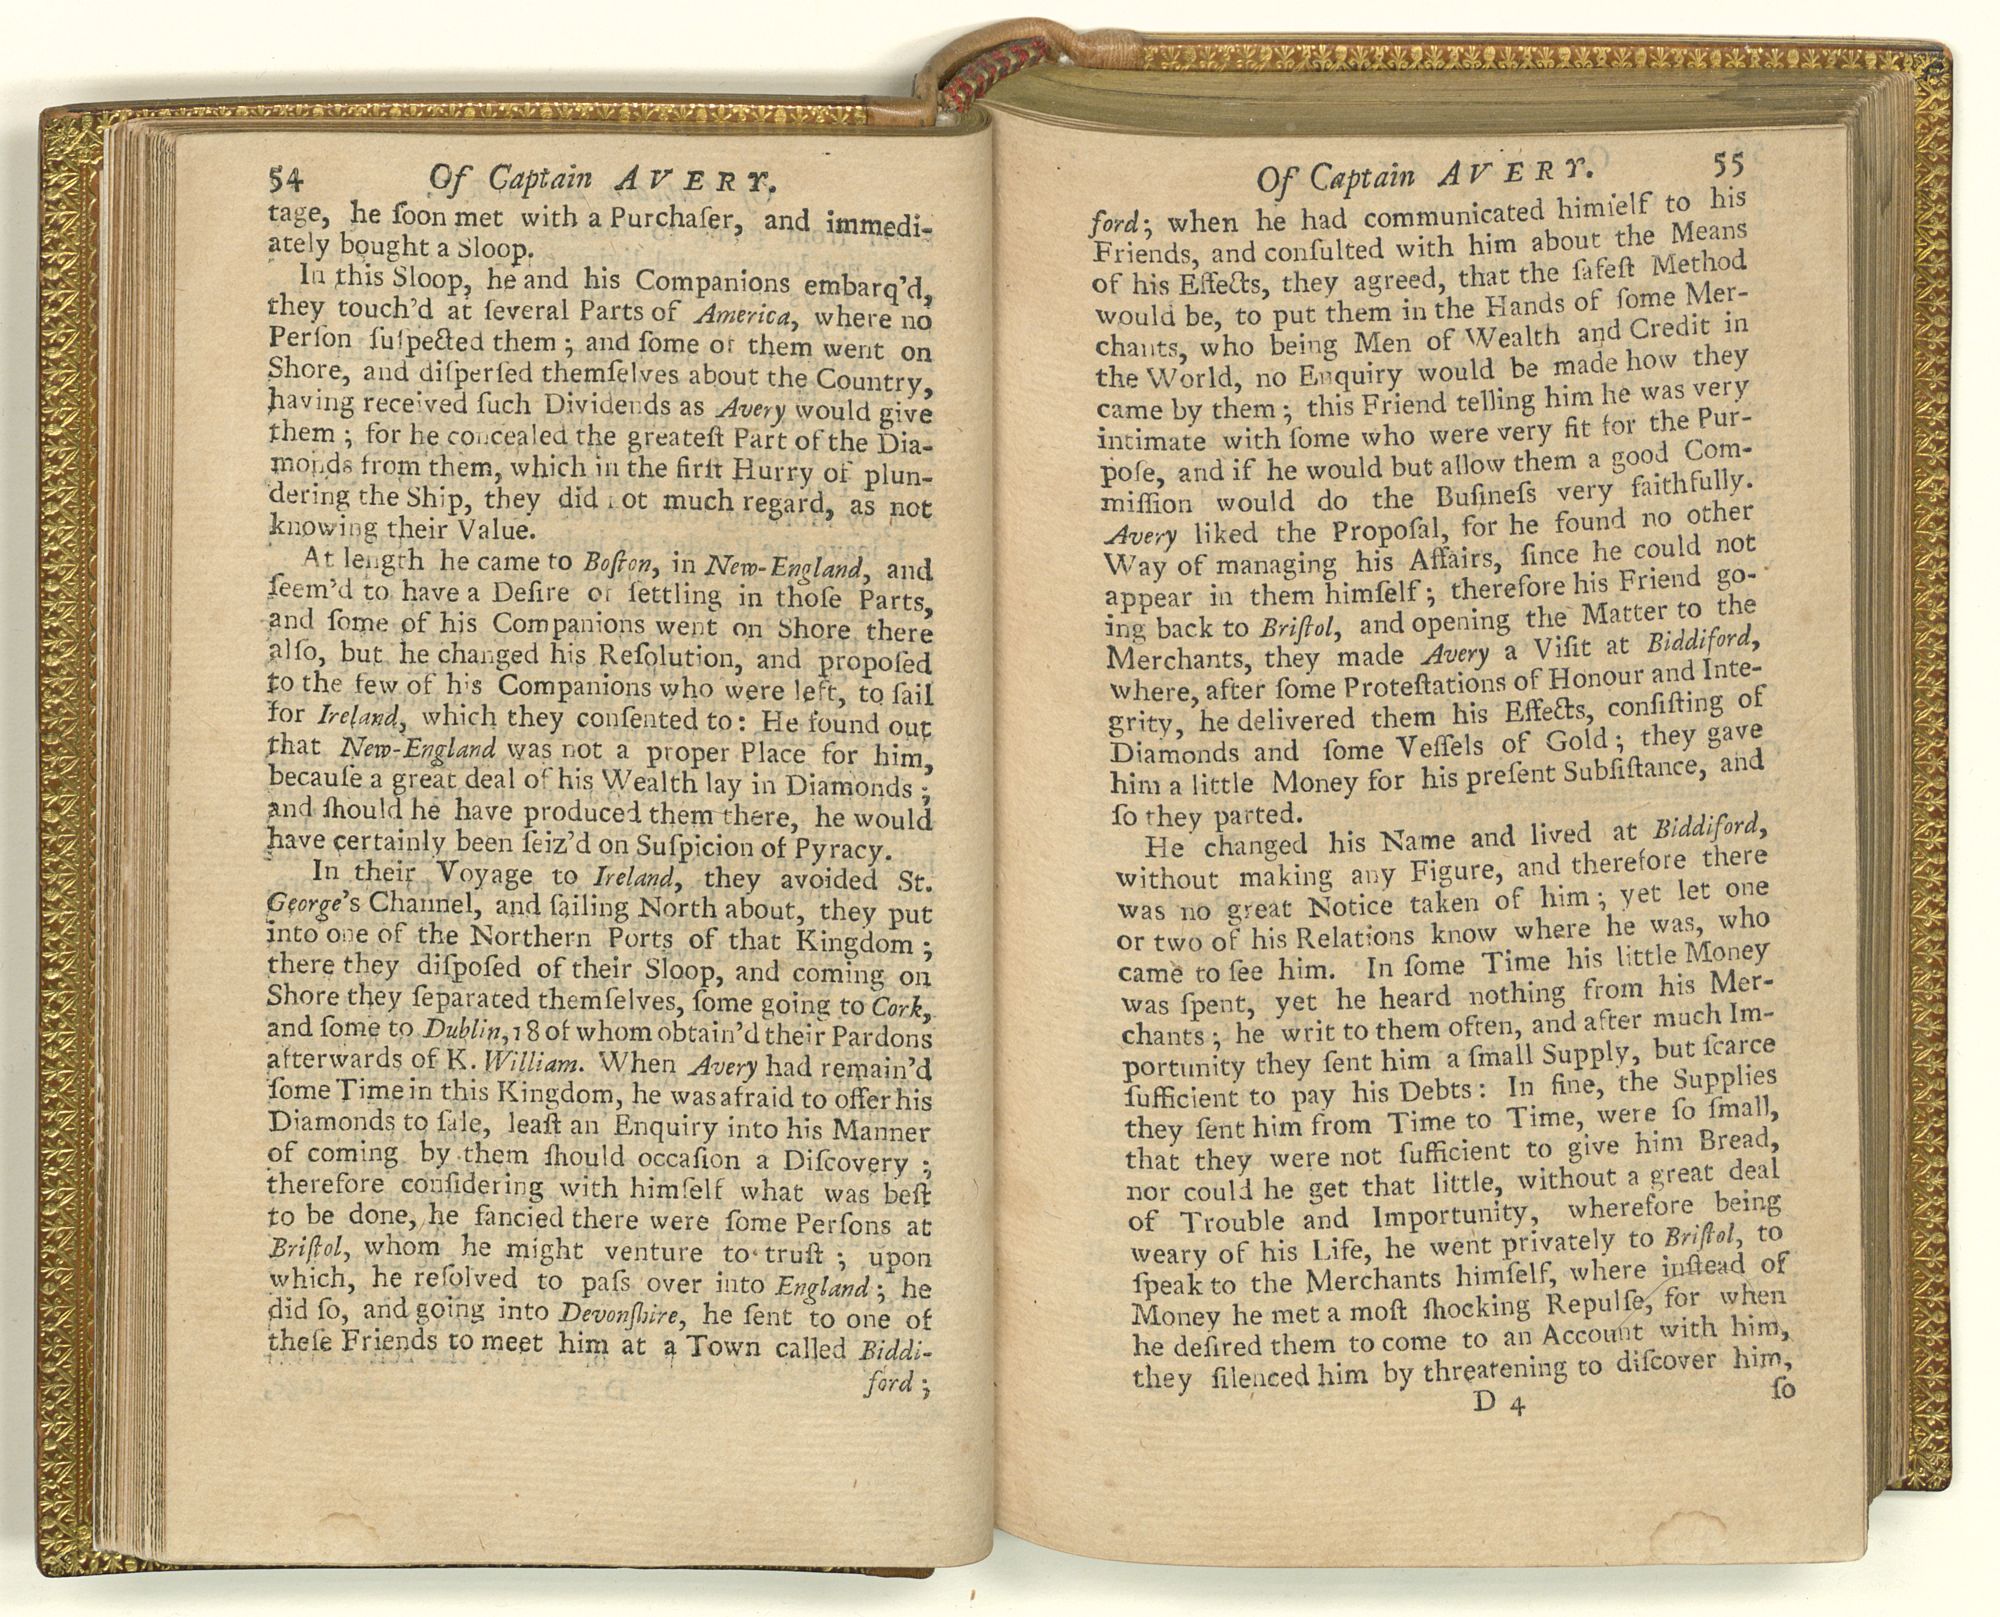 54 Of Captain AVERY.
tage, he ſoon met with a Purchaſer, and immedi-
ately bought a Sloop.
In this Sloop, he and his Companions embarq'd,
they touch'd at ſeveral Parts of America, where no
Perſon ſuſpected them; and ſome of them went on
Shore, and diſperſed themſelves about the Country,
having received ſuch Dividends as Avery would give
them; for he concealed the greateſt Part of the Dia-
monds from them, which in the firſt Hurry of plun-
dering the Ship, they did not much regard, as not
knowing their Value.
At length he came to Boſton, in New-England, and
ſeem'd to have a Deſire of ſettling in thoſe Parts,
and ſome of his Companions went on Shore there
alſo, but he changed his Reſolution, and propoſed
to the few of his Companions who were left, to ſail
for Ireland, which they conſented to: He found out
that New-England was not a proper Place for him,
becauſe a great deal of his Wealth lay in Diamonds;
and ſhould he have produced them there, he would
have certainly been ſeiz'd on Suſpicion of Pyracy.
In their Voyage to Ireland, they avoided St.
George's Channel, and ſailing North about, they put
into one of the Northern Ports of that Kingdom;
there they diſpoſed of their Sloop, and coming on
Shore they ſeparated themſelves, ſome going to Cork,
and ſome to Dublin, 18 of whom obtain'd their Pardons
afterwards of K. William. When Avery had remain'd
ſome Time in this Kingdom, he was afraid to offer his
Diamonds to ſale, leaſt an Enquiry into his Manner
of coming by them ſhould occaſion a Diſcovery;
therefore conſidering with himſelf what was beſt
to be done, he fancied there were ſome Perſons at
Briſtol, whom he might venture to truſt; upon
which, he reſolved to paſs over into England; he
did ſo, and going into Devonſhire, he ſent to one of
theſe Friends to meet him at a Town called Biddi-
ford;
Of Captain AVERY. 55
ford; when he had communicated himſelf to his
Friends, and conſulted with him about the Means
of his Effects, they agreed, that the ſafeſt Method
would be, to put them in the Hands of ſome Mer-
chants, who being Men of Wealth and Credit in
the World, no Enquiry would be made how they
came by them; this Friend telling him he was very
intimate with ſome who were very fit for the Pur-
poſe, and if he would but allow them a good Com-
miſſion would do the Buſineſs very faithfully.
Avery liked the Propoſal, for he found no other
Way of managing his Affairs, ſince he could not
appear in them himſelf; therefore his Friend go-
ing back to Briſtol, and opening the Matter to the
Merchants, they made Avery a Viſit at Biddiford,
where, after ſome Proteſtations of Honour and Inte-
grity, he delivered them his Effects, conſiſting of
Diamonds and ſome Veſſels of Gold; they gave
him a little Money for his preſent Subſiſtance, and
ſo they parted.
He changed his Name and lived at Biddiford,
without making any Figure, and therefore there
was no great Notice taken of him; yet let one
or two of his Relations know where he was, who
came to ſee him. In ſome Time his little Money
was ſpent, yet he heard nothing from his Mer-
chants; he writ to them often, and after much Im-
portunity they ſent him a ſmall Supply, but ſcarce
ſufficient to pay his Debts: In fine, the Supplies
they ſent him from Time to Time, were ſo ſmall,
that they were not ſufficient to give him Bread,
nor could he get that little, without a great deal
of Trouble and Importunity, wherefore being
weary of his Life, he went privately to Briſtol, to
ſpeak to the Merchants himſelf, where inſtead of
Money he met a moſt ſhocking Repulſe, for when
he deſired them to come to an Account with him,
they ſilenced him by threatening to diſcover him,
D 4 ſo